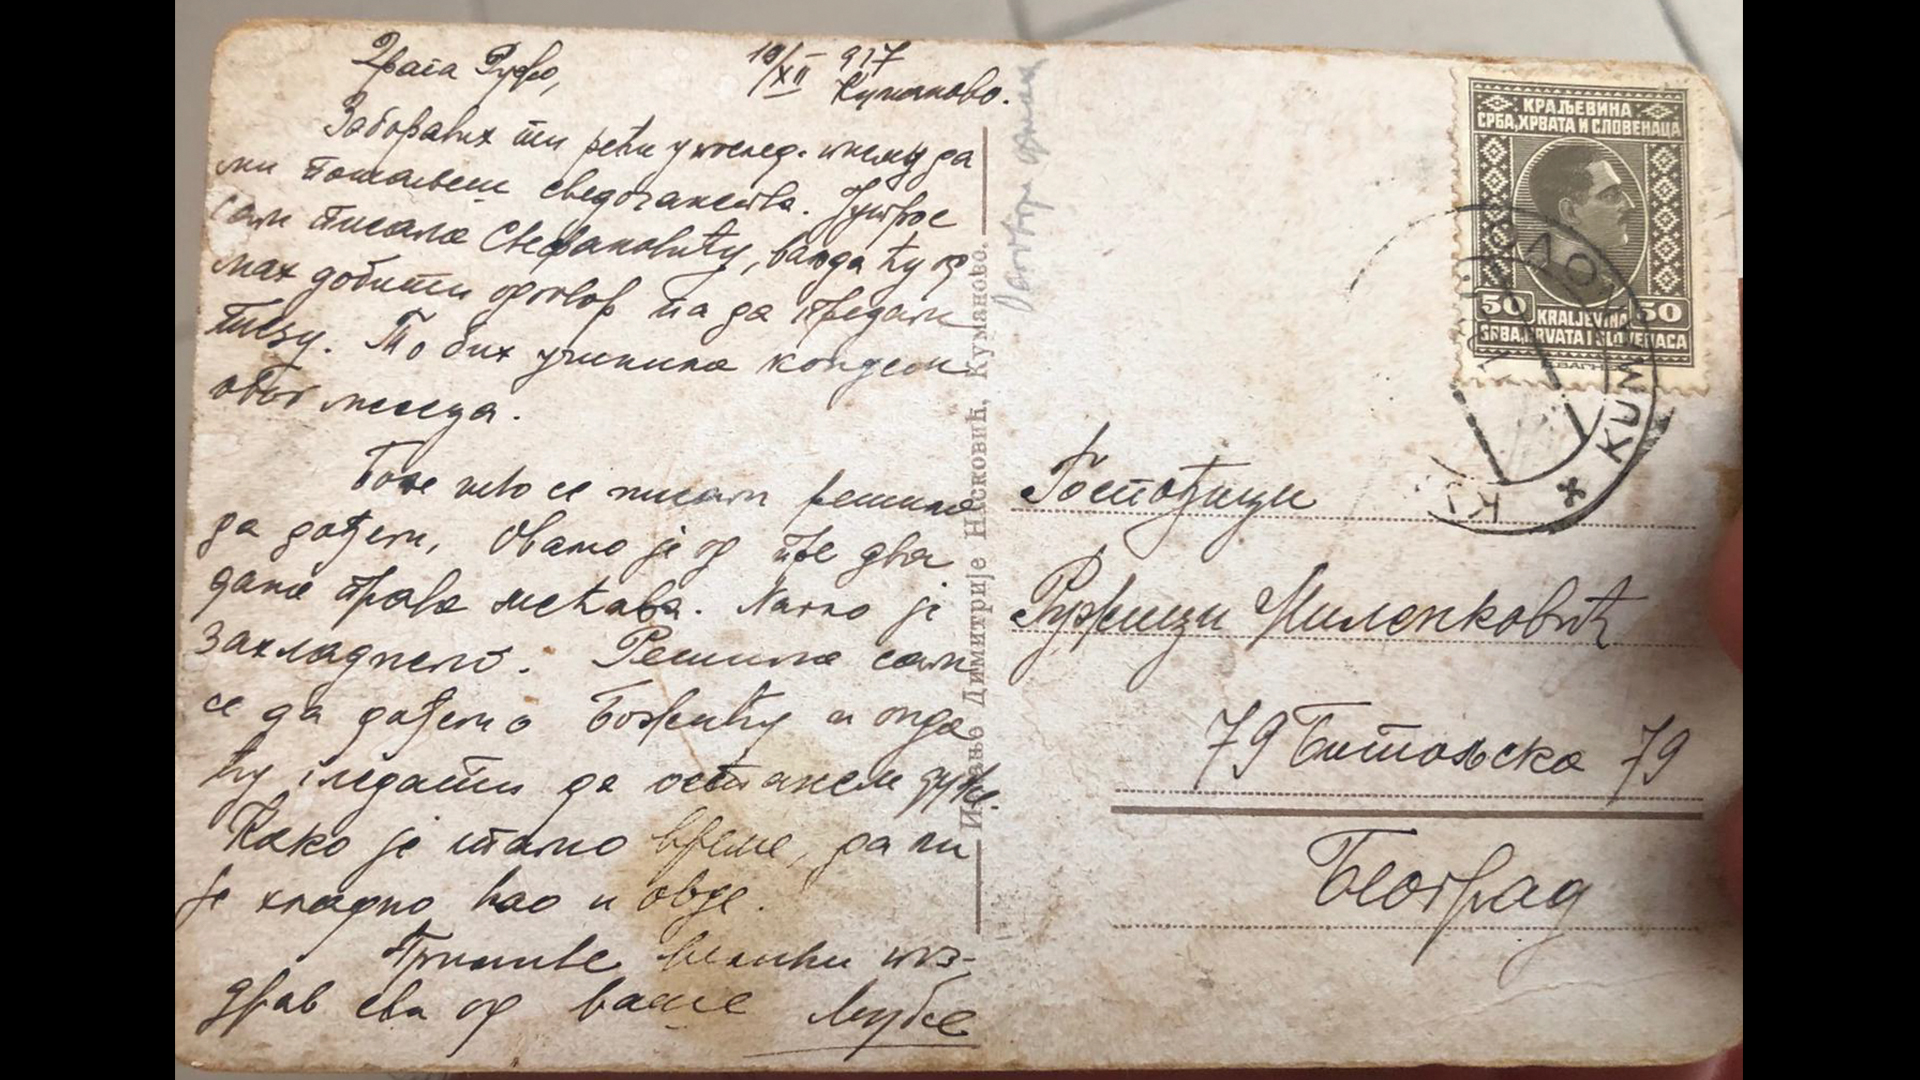 Драга Ружо,
10/XII 927
Куманово.
Заборавих ти рећи у послед. писму да
ми пошаљеш сведочанства. Јутрос
сам писала Стефановићу, ваљда ћу од
мах добити одговор па да предам
тезу. То бих учинила концем
овог месеца.
Боже што се нисам решила
да дођем, Овамо је од пре два
дана права мећава. Нагло је
захладнело. Решила сам
се да дођем о Божићу и онда
ћу гледати да останем дуже.
Како је тамо време, да ли
је хладно као и овде.
Примите велики поз-
драв сви од ваше Љубе
Издање Димитрије Несковић, Куманово.
КРАЉЕВИНА
СРБА, ХРВАТА И СЛОВЕНАЦА
50 50
KRALJEVINA
SRBA, HRVATA I SLOVENACA
ВАГНЕР
KUM
Госпођици
Ружици Миленковић
79 Битољска 79
Београд